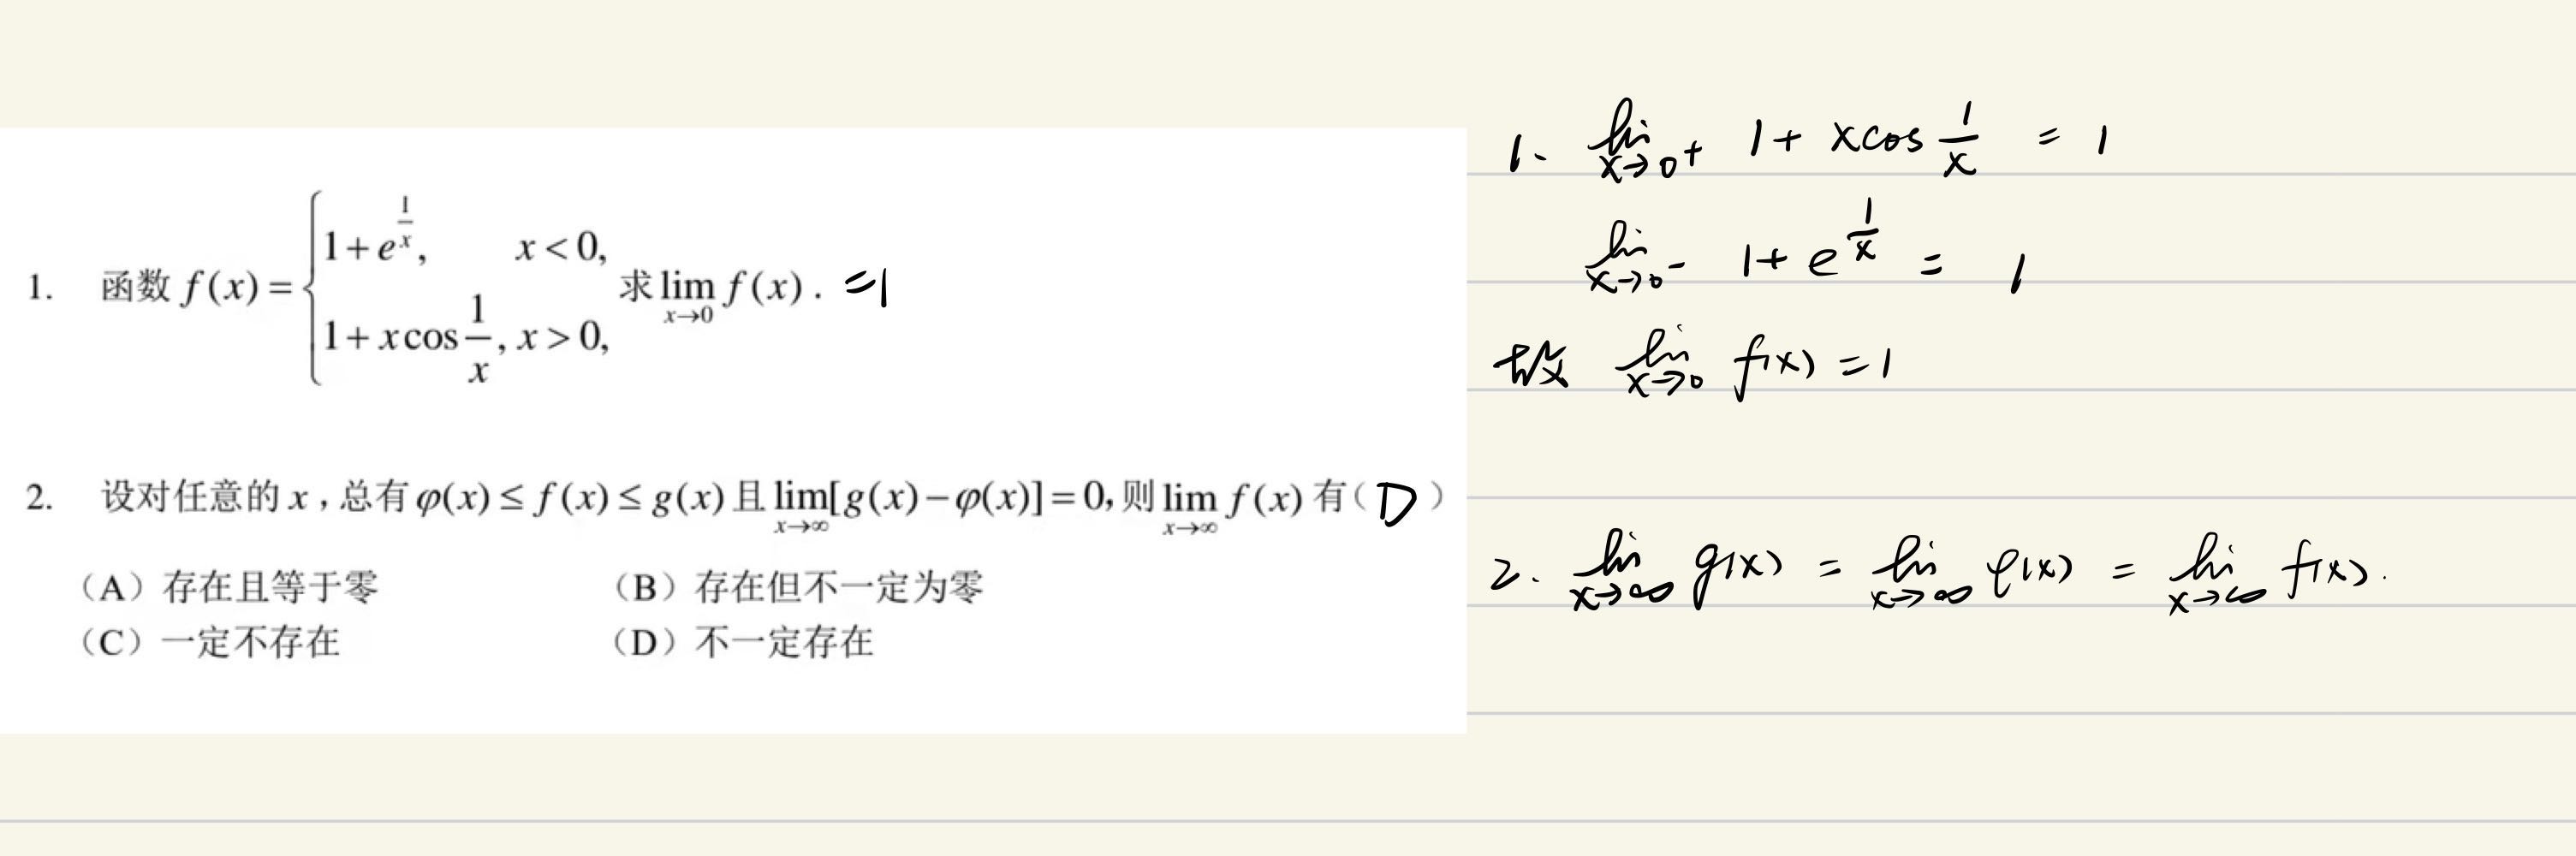 1. 函数 f(x) = { 1+e^{1/x}, x<0, 1+xcos 1/x, x>0, 求 lim_{x→0} f(x). =1
2. 设对任意的 x，总有 φ(x) ≤ f(x) ≤ g(x) 且 lim_{x→∞}[g(x)−φ(x)] = 0, 则 lim_{x→∞} f(x) 有（ D ）
（A）存在且等于零 （B）存在但不一定为零
（C）一定不存在 （D）不一定存在
1. lim_{x→0+} 1+ xcos 1/x = 1
lim_{x→0-} 1+ e^{1/x} = 1
故 lim_{x→0} f(x) = 1
2. lim_{x→∞} g(x) = lim_{x→∞} φ(x) = lim_{x→∞} f(x).